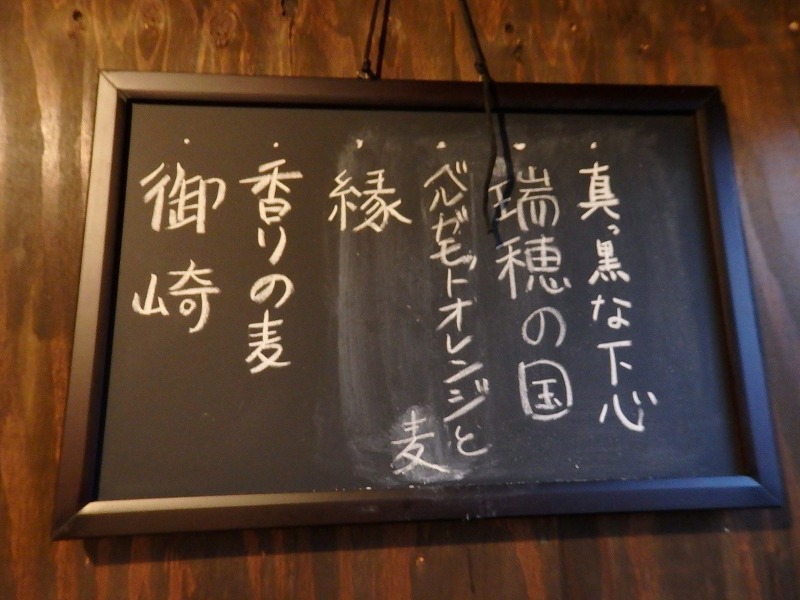 ・真っ黒な下心
・瑞穂の国
・ベルガモットオレンジと
麦
・縁
・香りの麦
・御崎